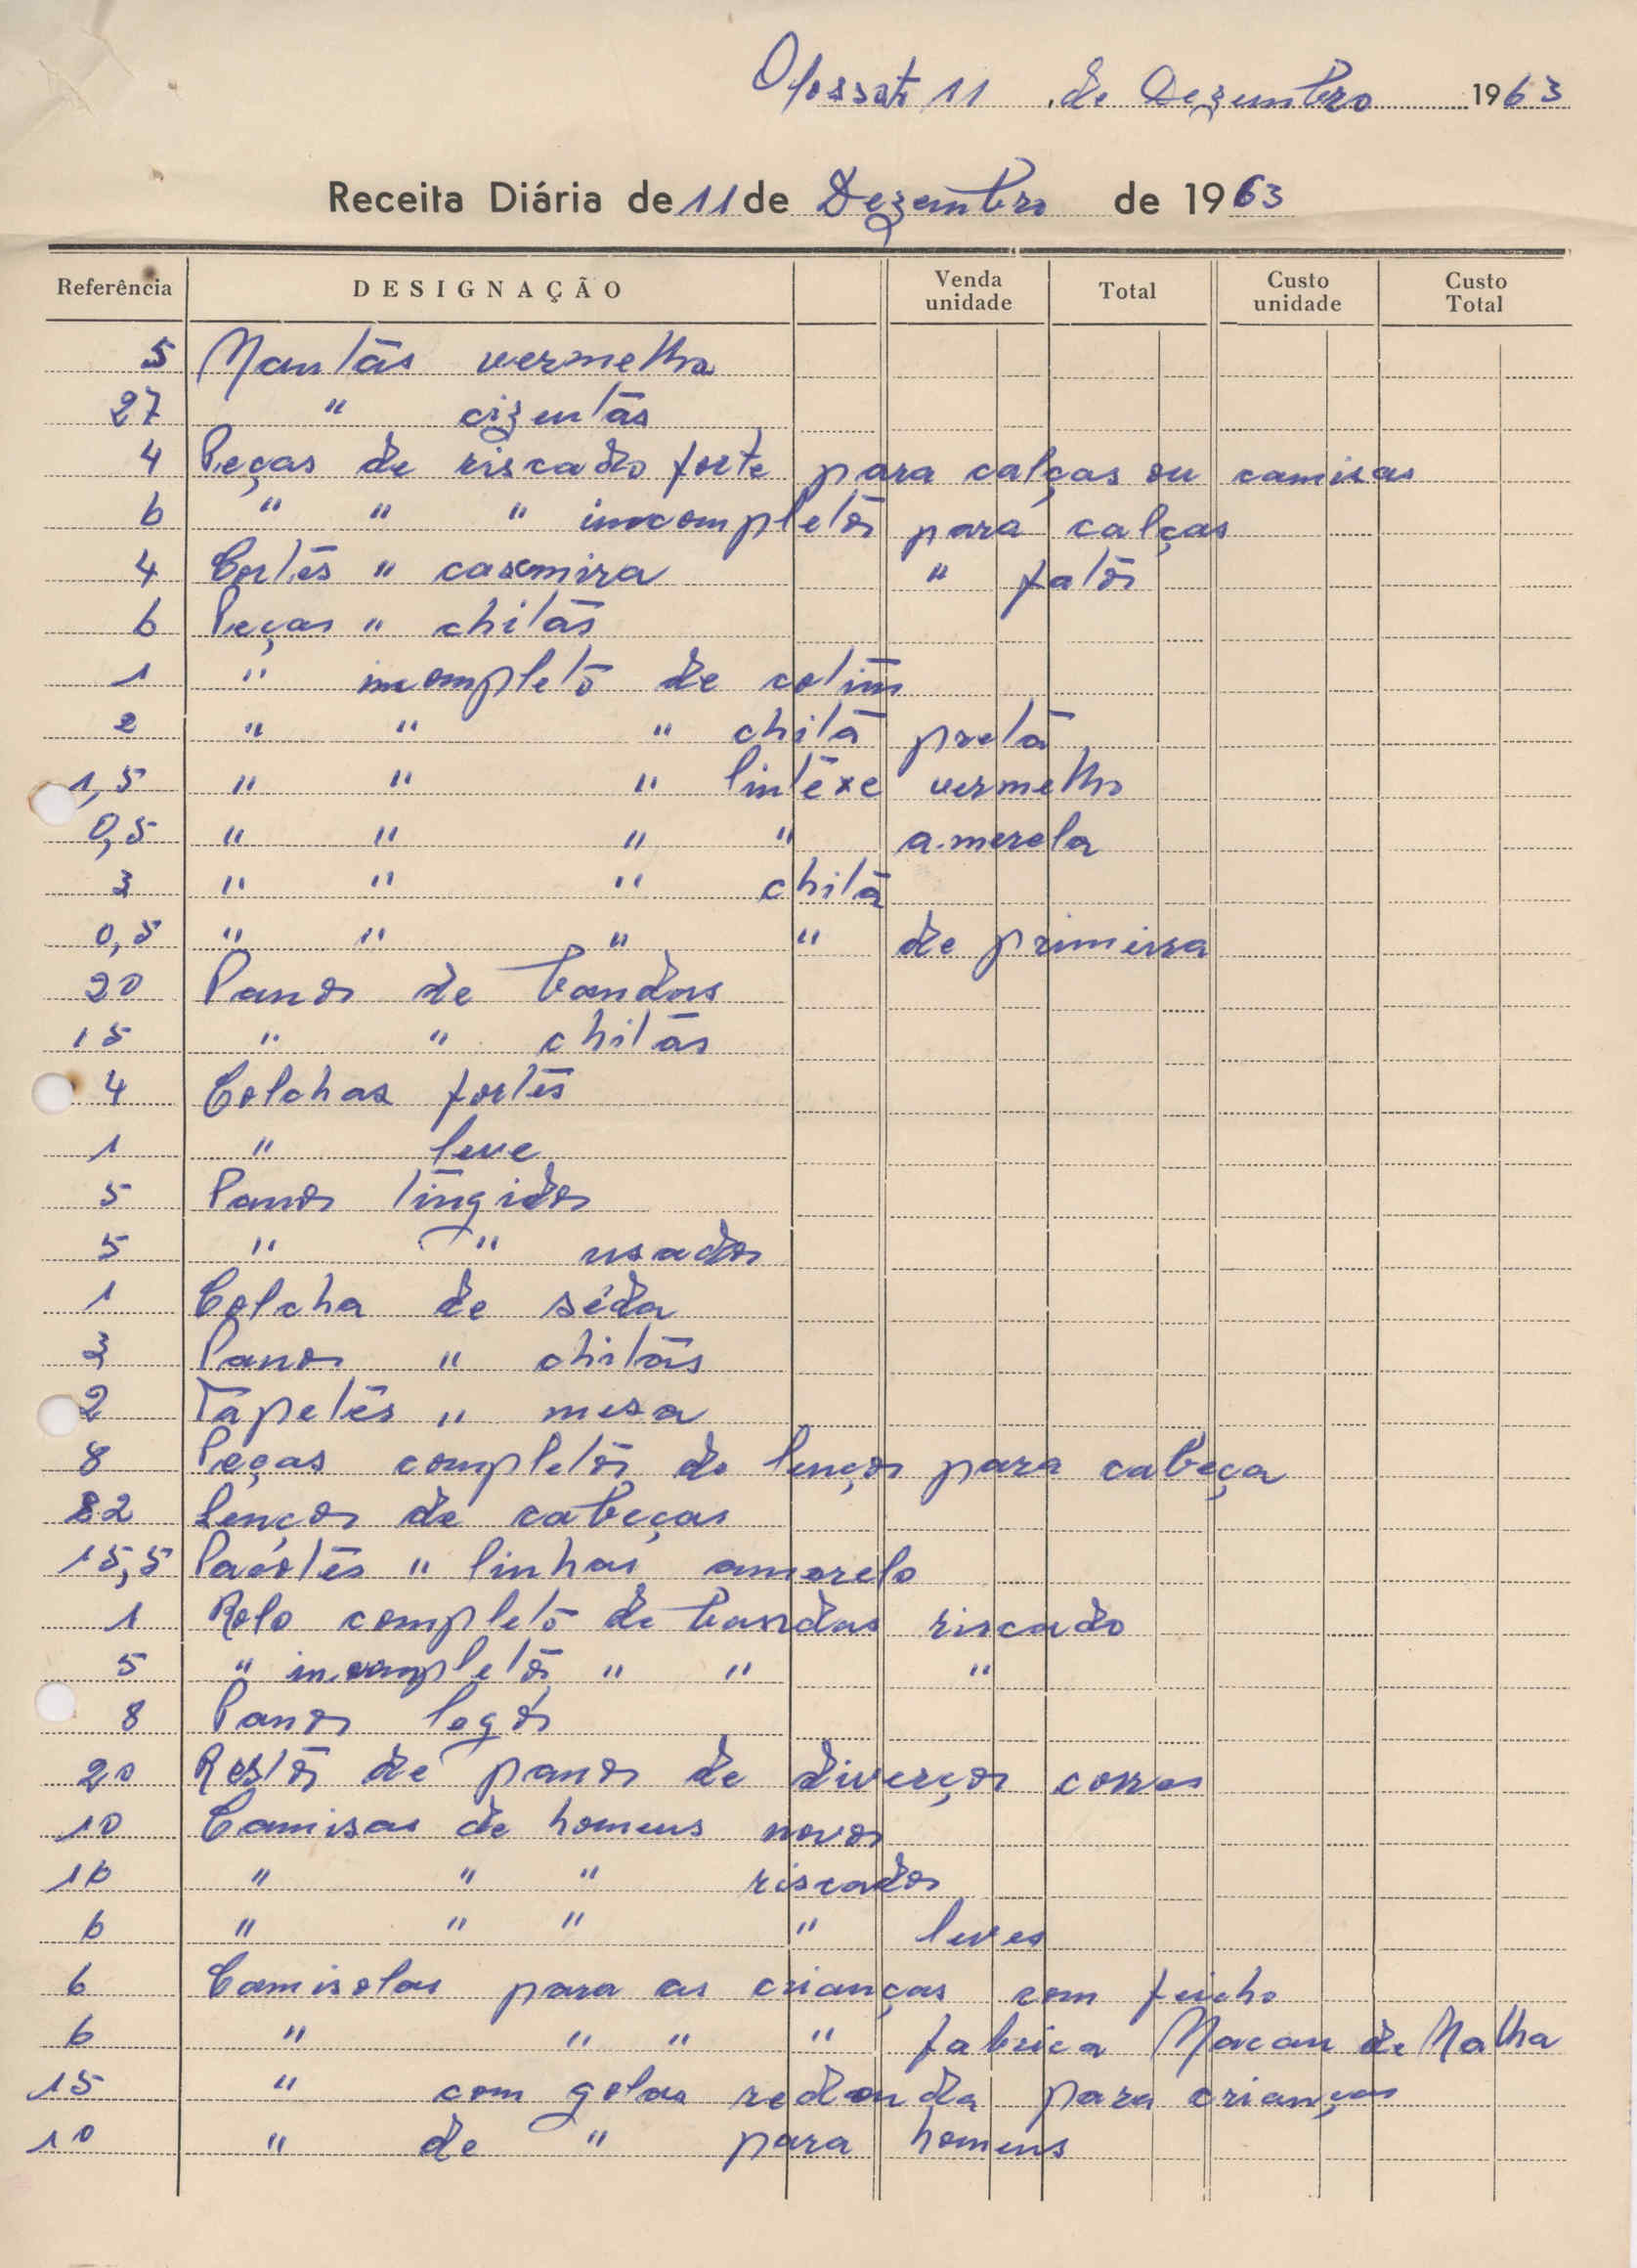 Olossato 11 de Dezembro 1963
Receita Diária de 11 de Dezembro de 1963
Referência DESIGNAÇÃO Venda unidade Total Custo unidade Custo Total
5 Mantas vermelha
27 " cizentas
4 Peças de riscado forte para calças ou camisas
6 " " " incompletos para calças
4 Cortes " casemira " fatos
6 Peças " chitas
1 " incompleto de cotim
2 " " " chita preta
1,5 " " " lintexe vermelho
0,5 " " " " amerela
3 " " " chita
0,5 " " " " de primeira
20 Panos de bandas
15 " " chitas
4 Colchas fortes
1 " leve
5 Panos tingidos
5 " " usados
1 Colcha de séda
3 Panos " chitas
2 Tapetes " mesa
8 Peças completos de lenços para cabeça
82 Lenços de cabeças
15,5 Pacotes " linhas amarelo
1 Rolo completo de bandas riscado
5 " incompletos " " "
8 Panos legós
20 Restos de panos de diverços corres
10 Camisas de homens novos
16 " " " riscados
6 " " " " leves
6 Camisolas para as crianças com feicho
6 " " " " fabrica Macau de Malha
15 " com golas redonda para crianças
10 " de " para homens